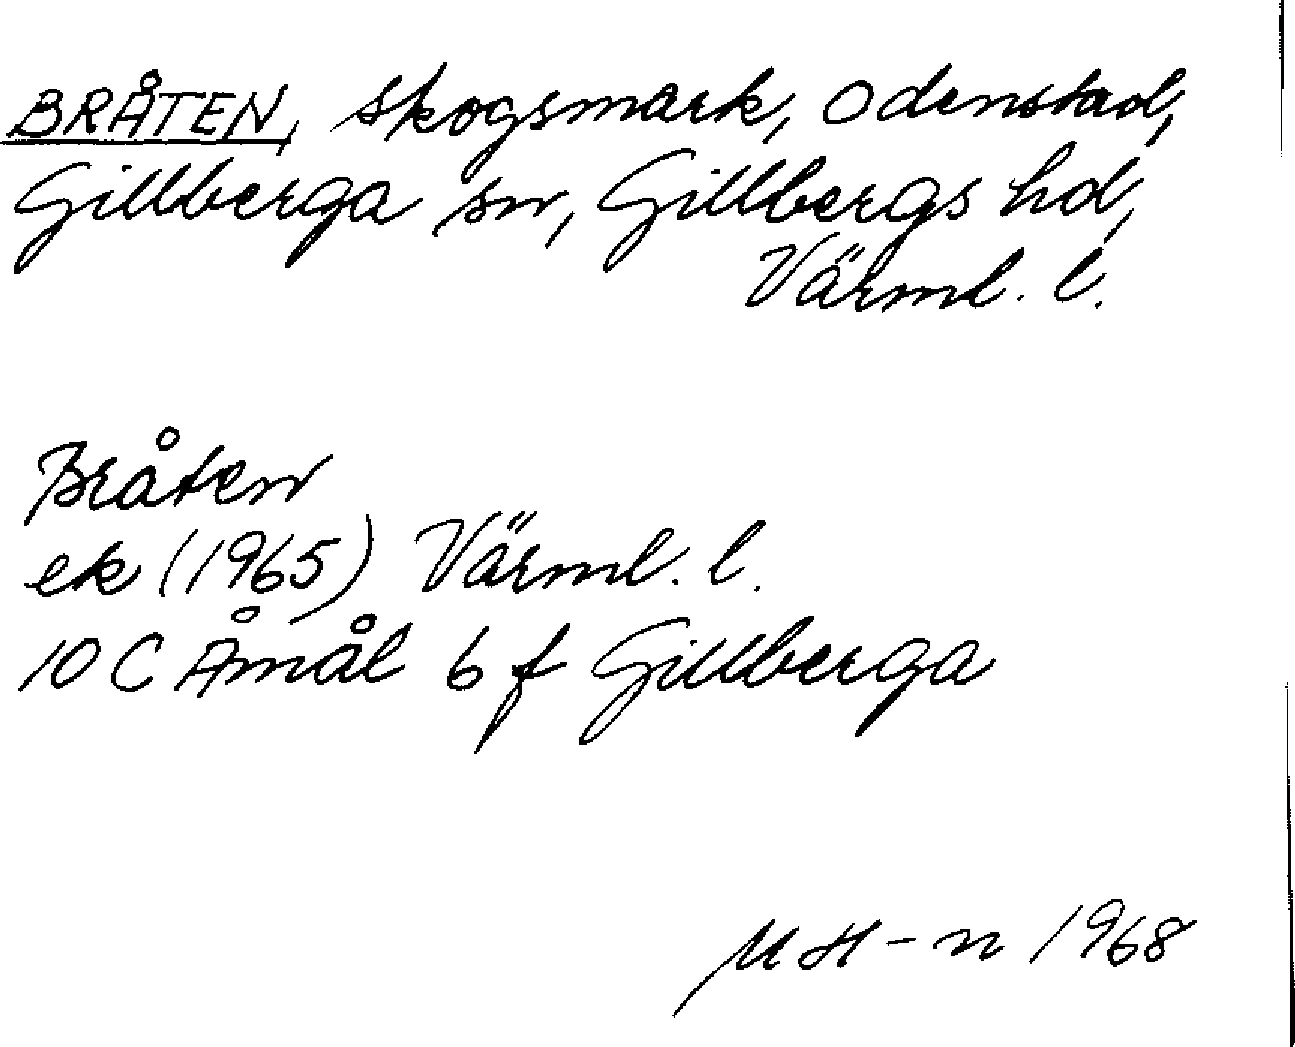 BRÅTEN, skogsmark, Odenstad,
Gillberga sn, Gillbergs hd,
Värml. l.
Bråten
ek (1965) Värml. l.
10 C Åmål 6 f Gillberga
MH-n 1968